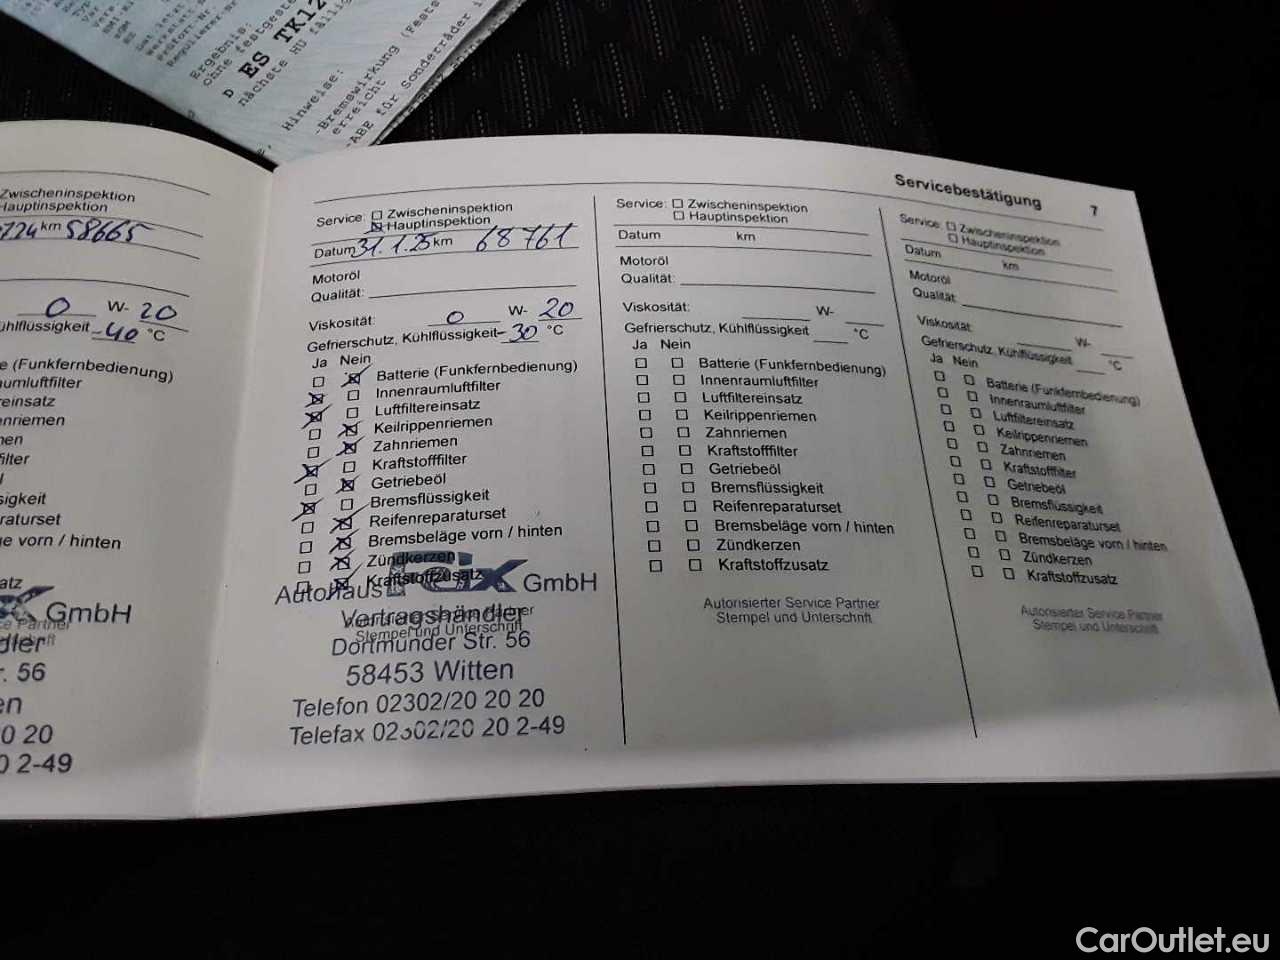 Ergebnis:
ohne festgeste
D ES TK12
nächste HU fällig
Hinweise:
-Bremswirkung (Fests
erreicht
-ABE für Sonderräder
Zwischeninspektion
Hauptinspektion
km 58665
0 W- 20
-40 °C
(Funkfernbedienung)
vorn / hinten
GmbH
56
0 20
2-49
Servicebestätigung 7
Service: Zwischeninspektion
Hauptinspektion
Datum 31.1.25 km 68761
Motoröl
Qualität:
Viskosität: 0 W- 20
Gefrierschutz, Kühlflüssigkeit -30 °C
Ja Nein
Batterie (Funkfernbedienung)
Innenraumluftfilter
Luftfiltereinsatz
Keilrippenriemen
Zahnriemen
Kraftstofffilter
Getriebeöl
Bremsflüssigkeit
Reifenreparaturset
Bremsbeläge vorn / hinten
Zündkerzen
Kraftstoffzusatz
Autohaus Feix GmbH
Vertragshändler
Autorisierter Service Partner
Stempel und Unterschrift
Dortmunder Str. 56
58453 Witten
Telefon 02302/20 20 20
Telefax 02302/20 20 2-49
Service: Zwischeninspektion
Hauptinspektion
Datum km
Motoröl
Qualität:
Viskosität: W-
Gefrierschutz, Kühlflüssigkeit °C
Ja Nein
Batterie (Funkfernbedienung)
Innenraumluftfilter
Luftfiltereinsatz
Keilrippenriemen
Zahnriemen
Kraftstofffilter
Getriebeöl
Bremsflüssigkeit
Reifenreparaturset
Bremsbeläge vorn / hinten
Zündkerzen
Kraftstoffzusatz
Autorisierter Service Partner
Stempel und Unterschrift
Service: Zwischeninspektion
Hauptinspektion
Datum km
Motoröl
Qualität:
Viskosität: W-
Gefrierschutz, Kühlflüssigkeit °C
Ja Nein
Batterie (Funkfernbedienung)
Innenraumluftfilter
Luftfiltereinsatz
Keilrippenriemen
Zahnriemen
Kraftstofffilter
Getriebeöl
Bremsflüssigkeit
Reifenreparaturset
Bremsbeläge vorn / hinten
Zündkerzen
Kraftstoffzusatz
Autorisierter Service Partner
Stempel und Unterschrift
CarOutlet.eu